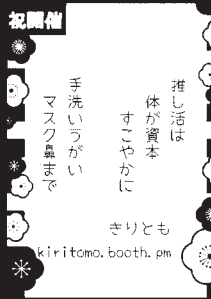 祝開催
推し活は
体が資本
すこやかに
手洗いうがい
マスク鼻まで
きりとも
kiritomo.booth.pm